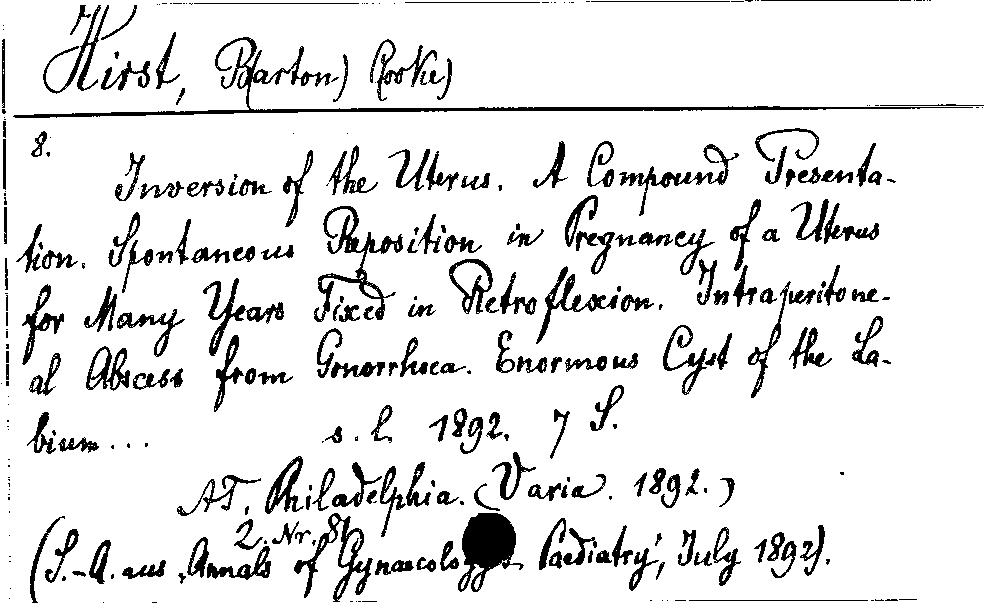 Hirst, B(arton) C(ooke)
8.
Inversion of the Uterus. A Compound Presenta-
tion. Spontaneous Reposition in Pregnancy of a Uterus
for Many Years Fixed in Retroflexion. Intraperitone-
al Abscess from Gonorrhoea. Enormous Cyst of the La-
bium...
s. l. 1892. 7 S.
AT. Philadelphia. (Varia. 1892.)
2. Nr. 81
(S.-A. aus „Annals of Gynaecology Paediatry", July 1892).